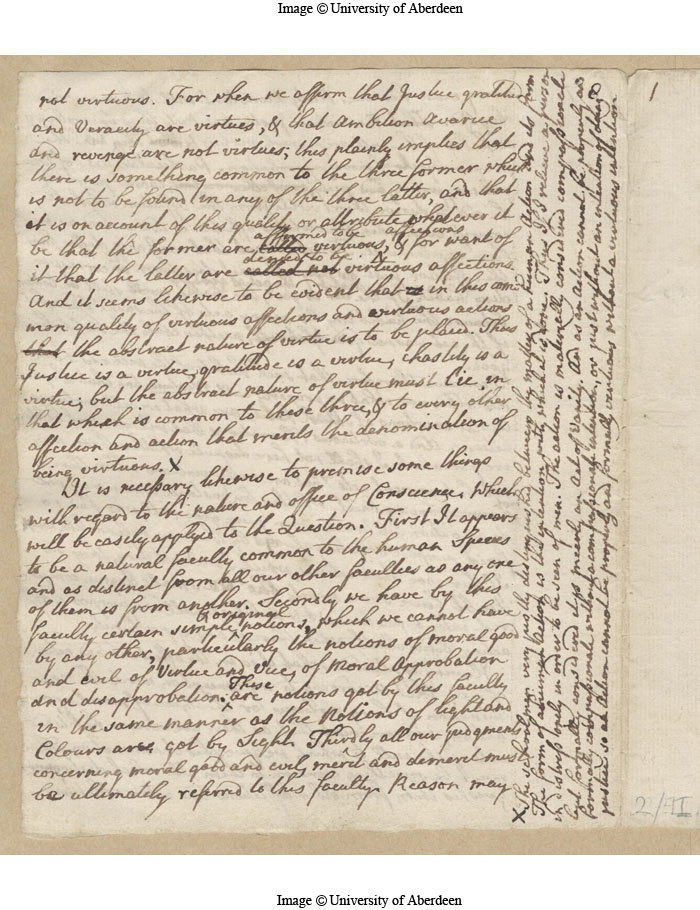 Image © University of Aberdeen
not virtuous. For when we affirm that Justice gratitude
and Veracity are virtues, & that Ambition Avarice
and revenge are not virtues; this plainly implies that
there is something common to the three former which
is not to be found in any of the three latter, and that
it is on account of this quality or attribute whatever it
affirmed to be affections
be that the former are called virtuous, & for want of
denied to be
it that the latter are called not virtuous affections.
And it seems likewise to be evident that in this com
mon quality of virtuous affections and virtuous actions
that the abstract nature of virtue is to be placed. Thus
Justice is a virtue, gratitude is a virtue, chastity is a
virtue; but the abstract nature of virtue must lie in
that which is common to these three, & to every other
affection and action that merits the denomination of
being virtuous. X
It is necessary likewise to premise some things
with regard to the nature and office of Conscience. Which
will be easily applied to the Question. First It appears
to be a natural faculty common to the human Species
and as distinct from all our other faculties as any one
of them is from another. Secondly we have by this
& original
faculty certain simple notions, which we cannot have
by any other, particularly the notions of moral good
and evil of Virtue and Vice, of Moral Approbation
These
and disapprobation; are notions got by this faculty
in the same manner as the Notions of light and
Colours are got by Sight. Thirdly all our judgments
concerning moral good and evil, merit and demerit must
be ultimately referred to this faculty. Reason may
X The Schoolmen very justly distinguished between the matter of a human Action and its form
The form of a human Action is the intention with which it is done. Thus if I relieve a person
in distress only in order to be seen of men. The action is materially considered compassionate
but formally considered it is merely an Act of Vanity. And as an Action cannot be properly and
formally compassionate without a compassionate intention, or just without an intention of doing
justice so an Action cannot be properly and formally virtuous without a virtuous intention
1
2/II
Image © University of Aberdeen